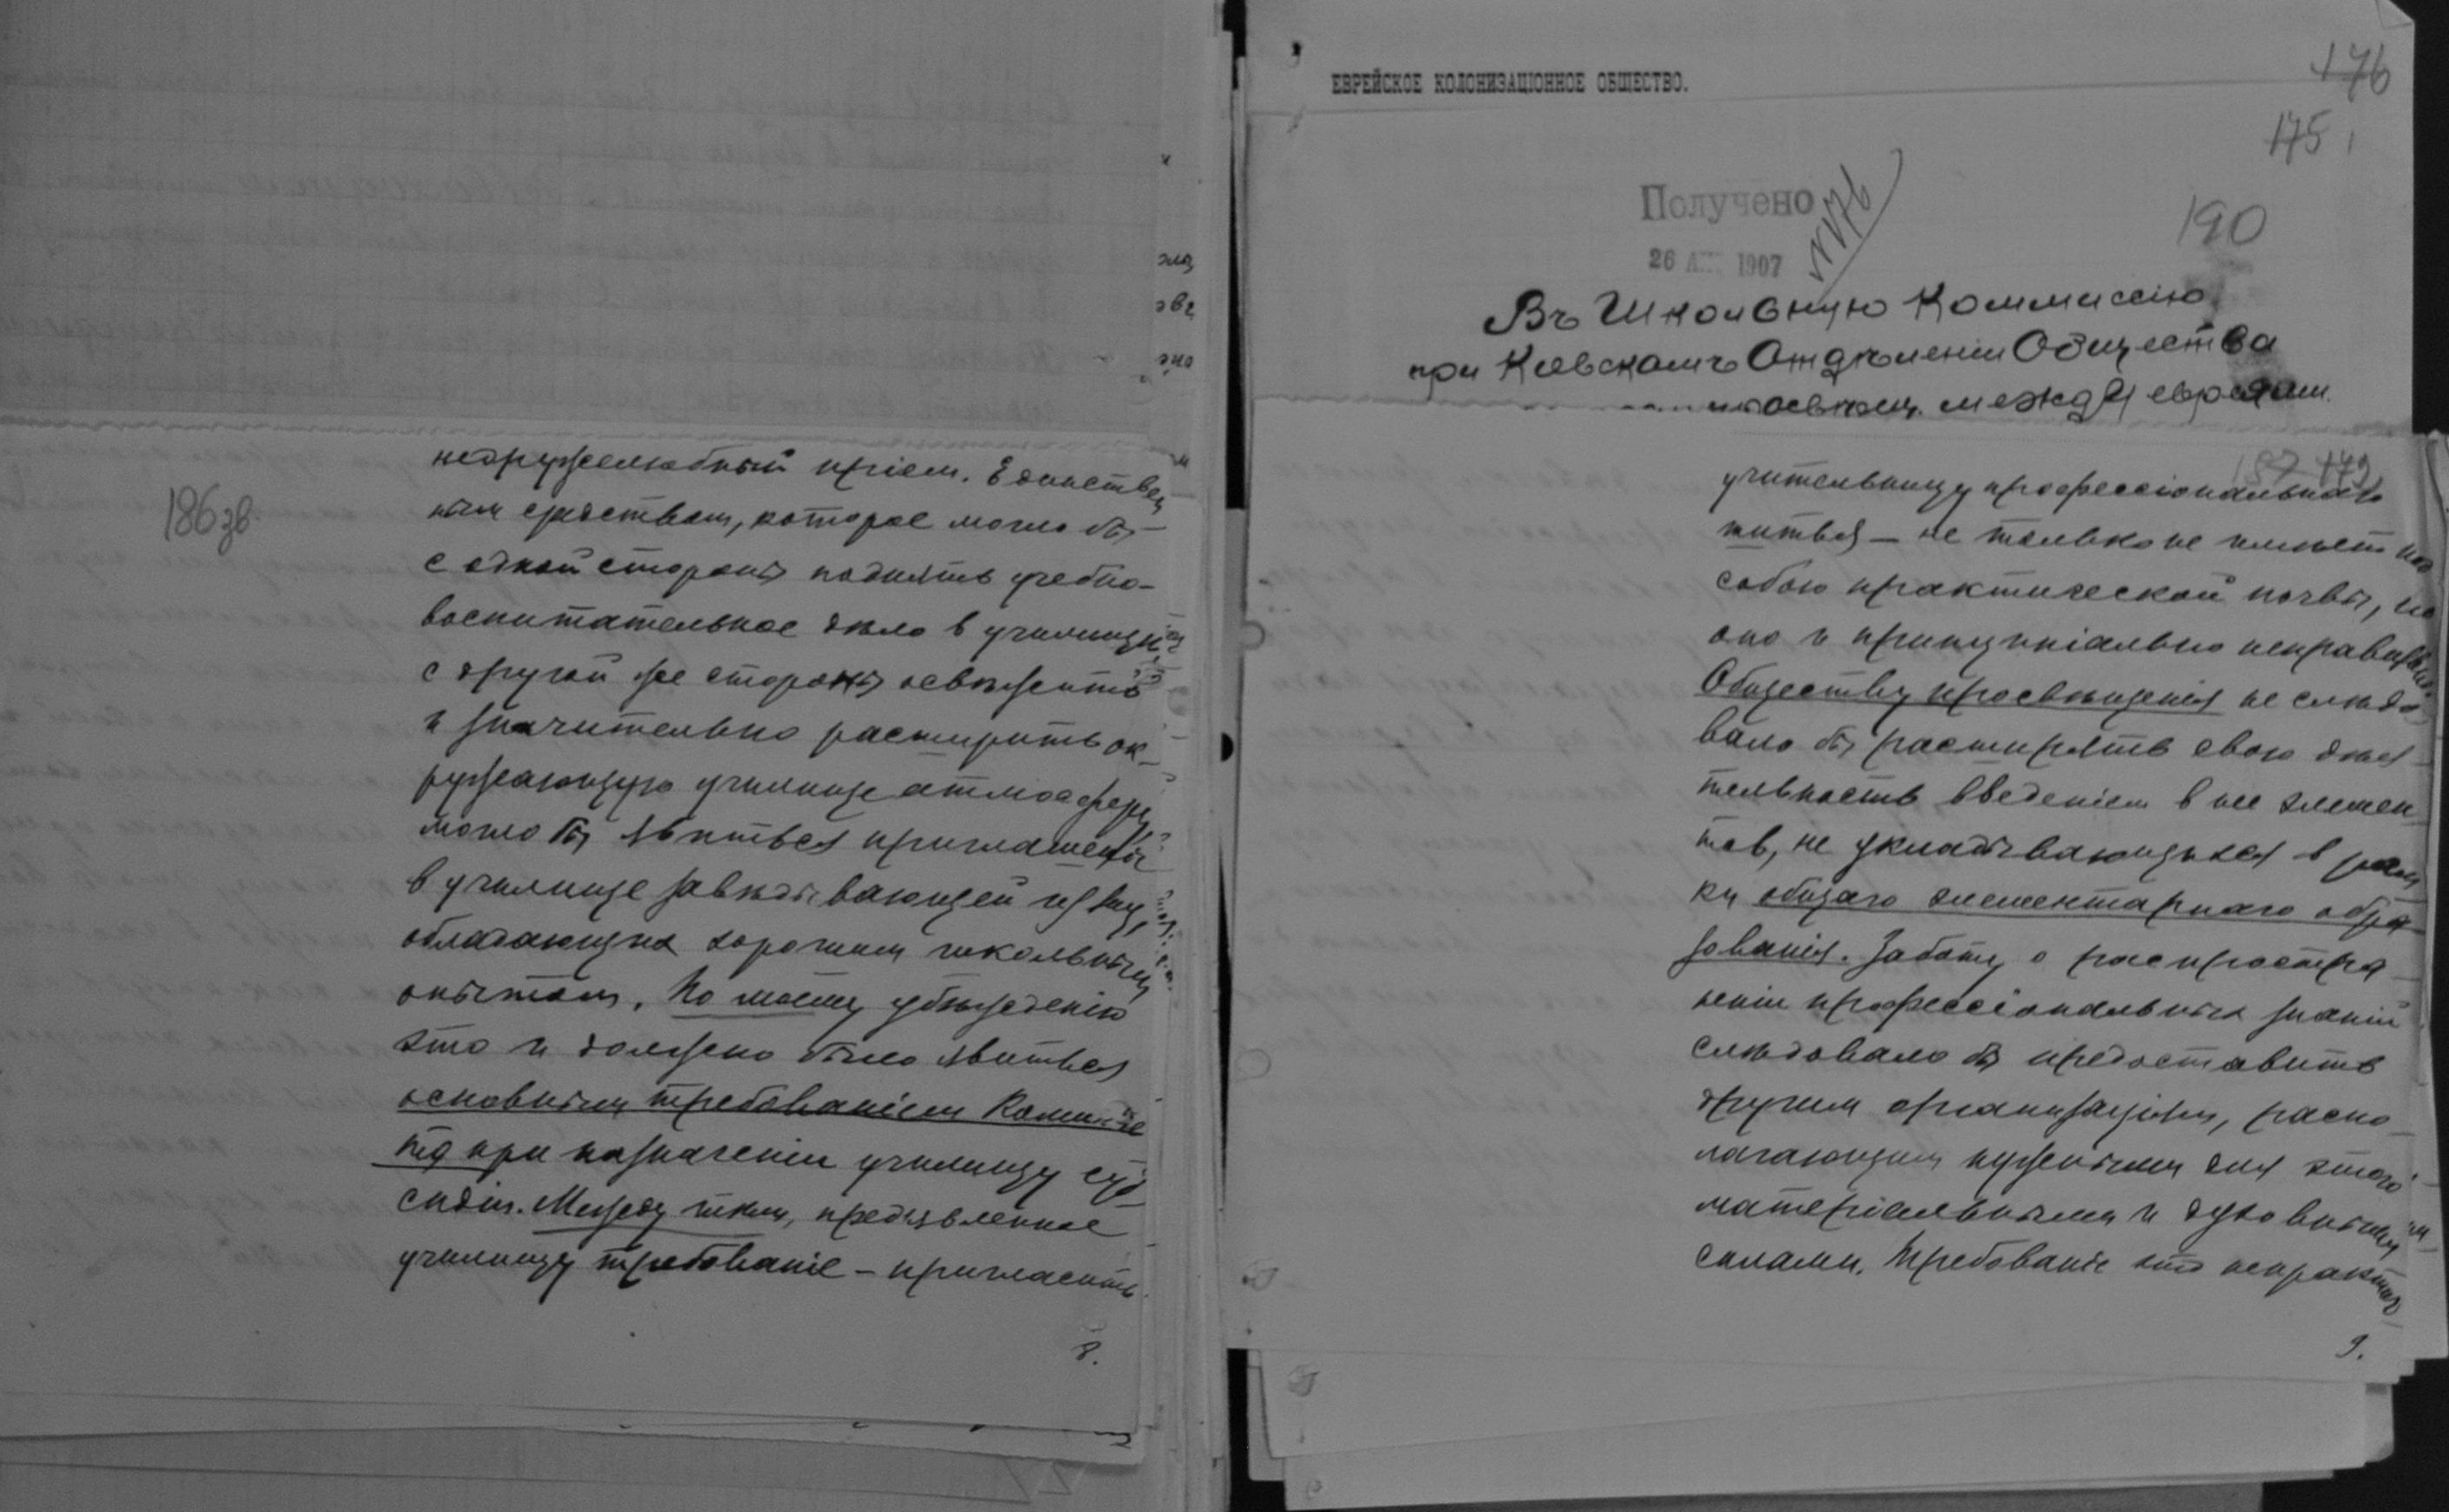 186 зв.
недружелюбный пріем. Единствен
ным средством, которое могло бы
с одной стороны поднять учебно-
воспитательное дѣло в училищѣ,
с другой же стороны освѣжить
и значительно расширить ок-
ружающую училище атмосферу
могло бы явиться приглашеніе
в училище завѣдывающей
обладающих хорошим школьным
опытом. По моему убѣжденію
это и должно было явиться
основным требованіем Комите
та при назначеніи училищу суб
сидіи. Между тѣм, предъявленное
училищу требованіе – пригласить
8.
ЕВРЕЙСКОЕ КОЛОНИЗАЦІОННОЕ ОБЩЕСТВО.
176
175
Получено
N176
26 1907
190
Въ Школьную Коммиссію
при Кіевскомъ Отдѣленіи Общества
просвѣщ. между евреями.
187 179
учительницу профессіональнаго
шитья – не только не имѣет под
собою практической почвы, но
оно и принципіально неправильно.
Обществу просвѣщенія не слѣдо
вало бы расширять свою дѣя
тельность введеніем в нее элемен
тов, не укладывающихся в рам
ки общаго элементарнаго обра
зованія. Заботу о распростра
неніи профессіональных знаній
слѣдовало бы предоставить
другим организаціям, распо
лагающим нужными для этого
матеріальными и духовными
силами. Требованіе это непрактич
9.